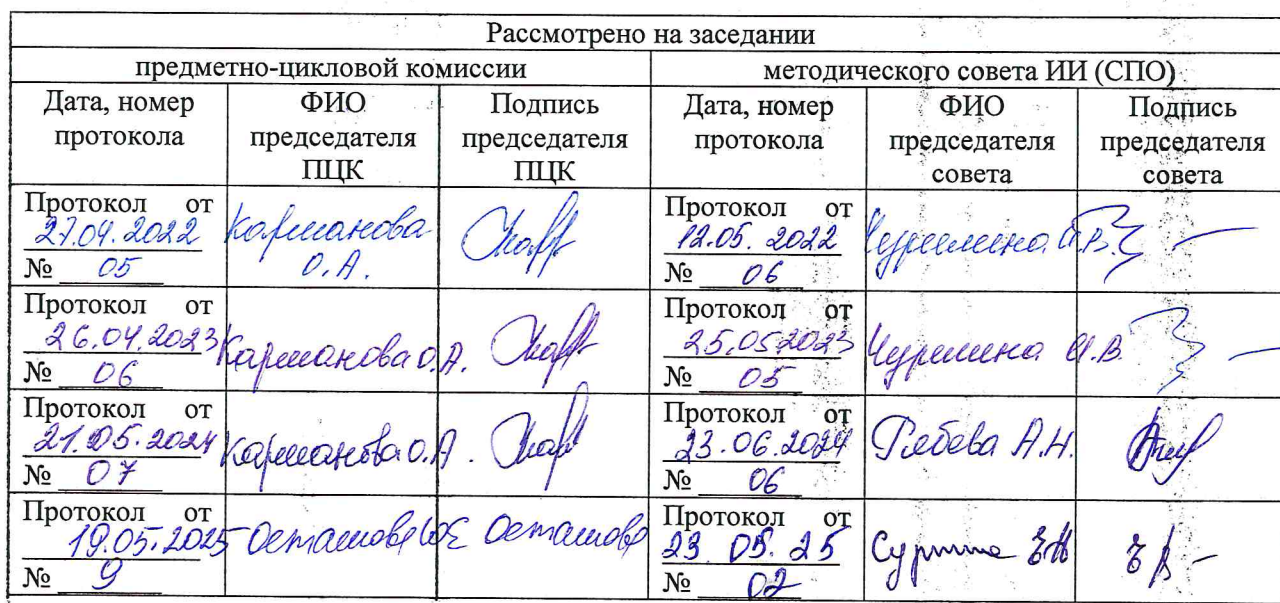 Рассмотрено на заседании
предметно-цикловой комиссии методического совета ИИ (СПО)
Дата, номер протокола ФИО председателя ПЦК Подпись председателя ПЦК Дата, номер протокола ФИО председателя совета Подпись председателя совета
Протокол от
27.04.2022
№ 05
Карманова
О.А.
Протокол от
12.05.2022
№ 06
Протокол от
26.04.2023
№ 06
Карманова О.А.
Протокол от
25.05.2023
№ 05
Протокол от
21.05.2024
№ 07
Карманова О.А.
Протокол от
23.06.2024
№ 06
А.Н.
Протокол от
19.05.2025
№ 9
Протокол от
23.05.25
№ 02